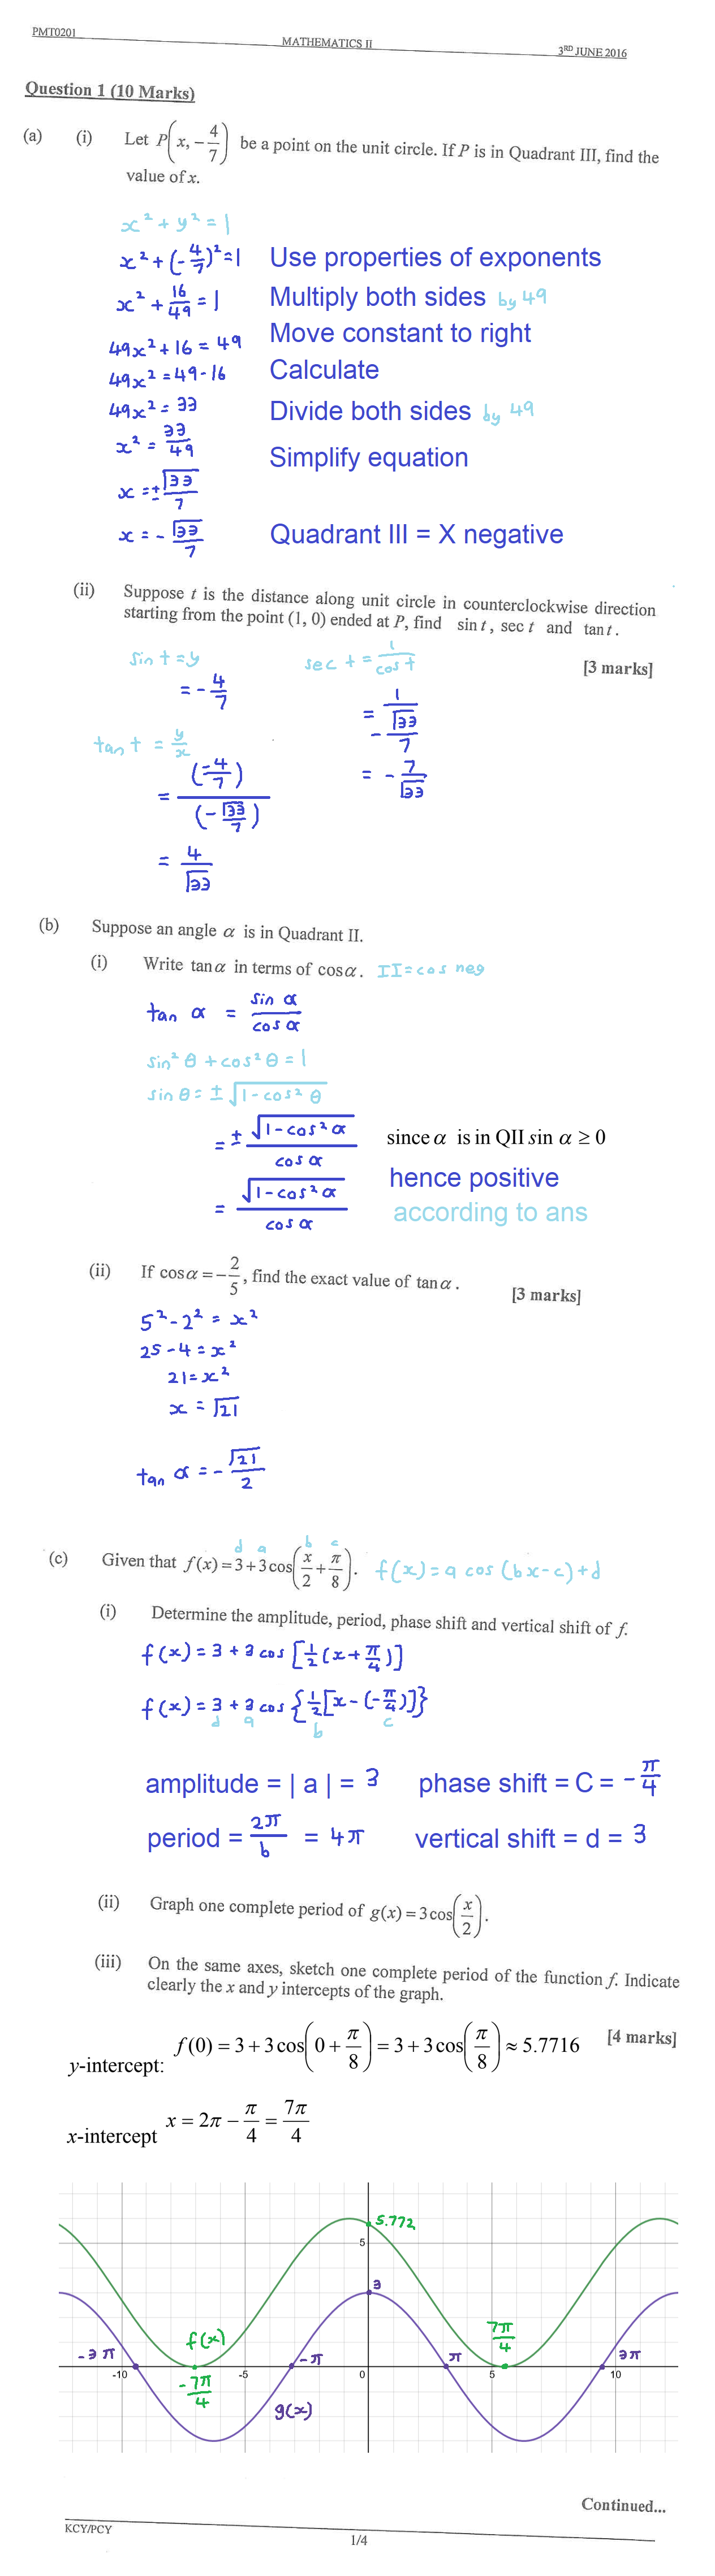 PMT0201 MATHEMATICS II 3RD JUNE 2016
Question 1 (10 Marks)
(a) (i) Let P(x, -4/7) be a point on the unit circle. If P is in Quadrant III, find the
value of x.
x² + y² = 1
x² + (-4/7)² = 1 Use properties of exponents
x² + 16/49 = 1 Multiply both sides by 49
49x² + 16 = 49 Move constant to right
49x² = 49 - 16 Calculate
49x² = 33 Divide both sides by 49
x² = 33/49 Simplify equation
x = ± √33/7
x = - √33/7 Quadrant III = X negative
(ii) Suppose t is the distance along unit circle in counterclockwise direction
starting from the point (1, 0) ended at P, find sin t, sec t and tan t.
[3 marks]
sin t = y
= -4/7
sec t = 1/cos t
= 1/-√33/7
= - 7/√33
tan t = y/x
= (-4/7)/(-√33/7)
= 4/√33
(b) Suppose an angle α is in Quadrant II.
(i) Write tan α in terms of cos α. II = cos neg
tan α = sin α/cos α
sin² θ + cos² θ = 1
sin θ = ± √1 - cos² θ
= ± √1 - cos² α/cos α since α is in QII sin α ≥ 0
= √1 - cos² α/cos α hence positive
according to ans
(ii) If cos α = -2/5, find the exact value of tan α. [3 marks]
5² - 2² = x²
25 - 4 = x²
21 = x²
x = √21
tan α = - √21/2
d a b c
(c) Given that f(x) = 3 + 3 cos(x/2 + π/8). f(x) = a cos (bx - c) + d
(i) Determine the amplitude, period, phase shift and vertical shift of f.
f(x) = 3 + 3 cos [1/2 (x + π/4)]
f(x) = 3 + 3 cos {1/2 [x - (-π/4)]}
d a b c
amplitude = | a | = 3 phase shift = C = - π/4
period = 2π/b = 4π vertical shift = d = 3
(ii) Graph one complete period of g(x) = 3 cos(x/2).
(iii) On the same axes, sketch one complete period of the function f. Indicate
clearly the x and y intercepts of the graph.
[4 marks]
y-intercept: f(0) = 3 + 3 cos(0 + π/8) = 3 + 3 cos(π/8) ≈ 5.7716
x-intercept x = 2π - π/4 = 7π/4
5.772
5
3
f(x) 7π/4
-3π -π π 3π
-10 -5 0 5 10
-7π/4
g(x)
Continued...
KCY/PCY
1/4